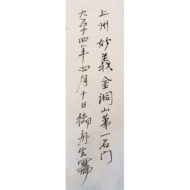 上州妙義金洞山第一石門
大正十四年四月十日 舟生寫